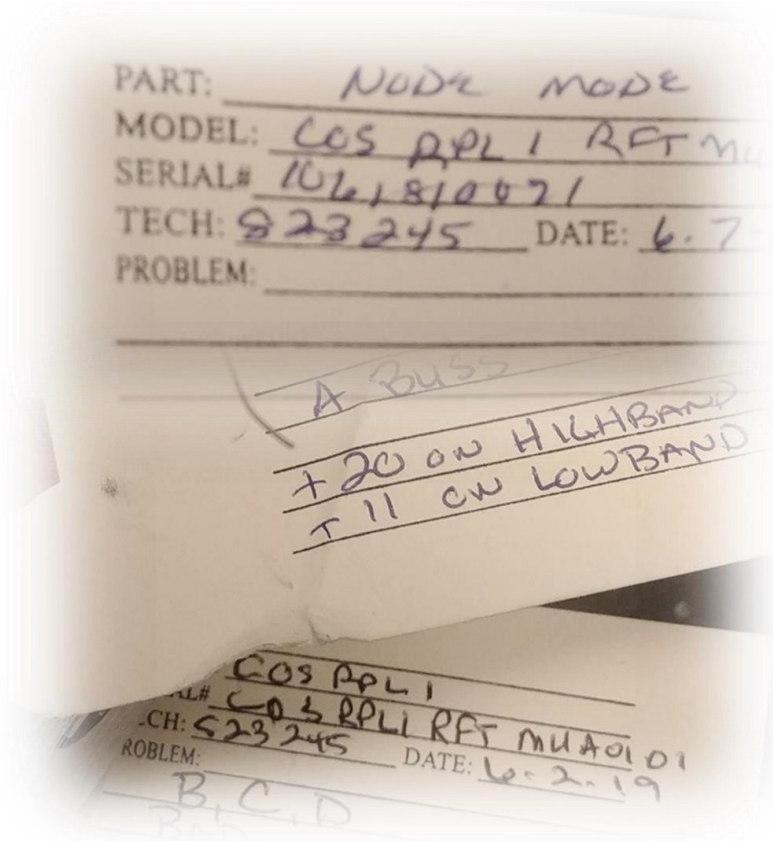 PART: NODE MODE
MODEL: COS RPL 1 RFT MU
SERIAL#
TECH: 823245 DATE: 6.7-
PROBLEM:
A BUSS
+20 ON HIGHBAND
+11 ON LOWBAND
COS RPL1
AL# COS RPL1 RFT MUA0101
CH: 823245 DATE: 6-2-19
ROBLEM:
B, C, D